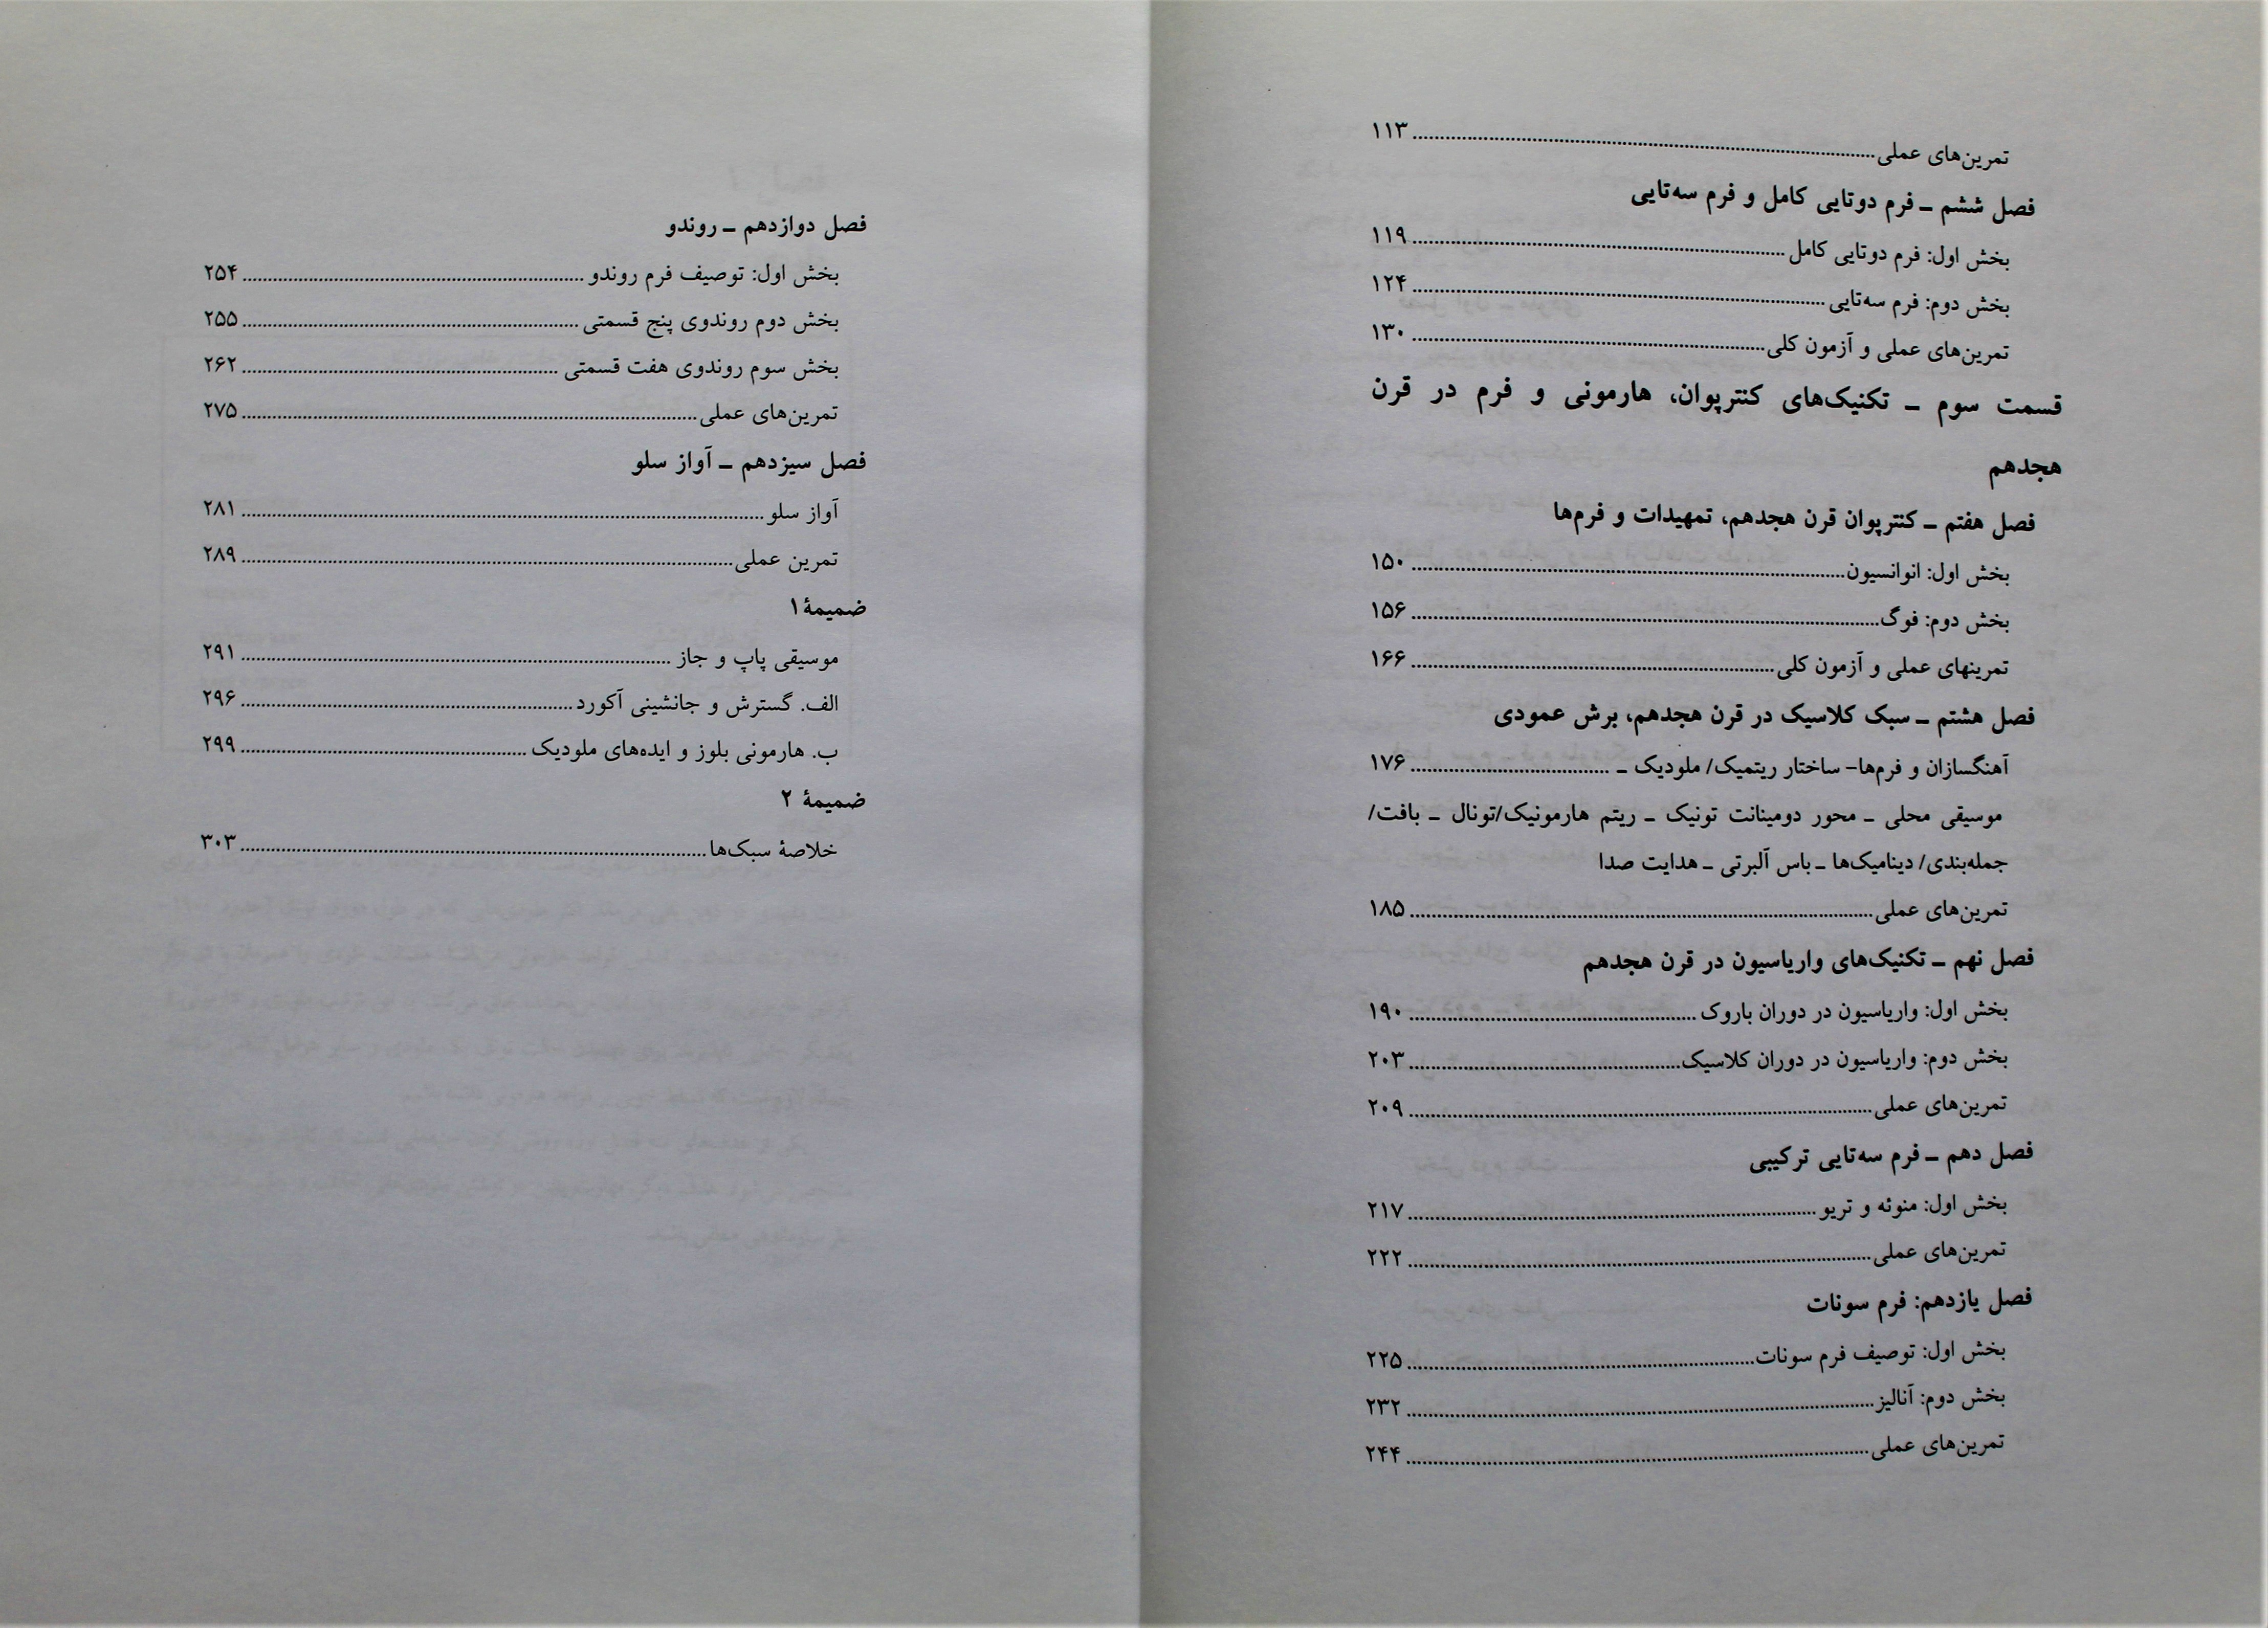 تمرین‌های عملی ........ ۱۱۳
فصل ششم ـ فرم دوتایی کامل و فرم سه‌تایی
بخش اول: فرم دوتایی کامل ........ ۱۱۹
بخش دوم: فرم سه‌تایی ........ ۱۲۴
تمرین‌های عملی و آزمون کلی ........ ۱۳۰
قسمت سوم ـ تکنیک‌های کنترپوان، هارمونی و فرم در قرن
هجدهم
فصل هفتم ـ کنترپوان قرن هجدهم، تمهیدات و فرم‌ها
بخش اول: انوانسیون ........ ۱۵۰
بخش دوم: فوگ ........ ۱۵۶
تمرینهای عملی و آزمون کلی ........ ۱۶۶
فصل هشتم ـ سبک کلاسیک در قرن هجدهم، برش عمودی
آهنگسازان و فرم‌ها- ساختار ریتمیک/ ملودیک ـ ........ ۱۷۶
موسیقی محلی ـ محور دومینانت تونیک ـ ریتم هارمونیک/تونال ـ بافت/
جمله‌بندی/ دینامیک‌ها ـ باس آلبرتی ـ هدایت صدا
تمرین‌های عملی ........ ۱۸۵
فصل نهم ـ تکنیک‌های واریاسیون در قرن هجدهم
بخش اول: واریاسیون در دوران باروک ........ ۱۹۰
بخش دوم: واریاسیون در دوران کلاسیک ........ ۲۰۳
تمرین‌های عملی ........ ۲۰۹
فصل دهم ـ فرم سه‌تایی ترکیبی
بخش اول: منوئه و تریو ........ ۲۱۷
تمرین‌های عملی ........ ۲۲۲
فصل یازدهم: فرم سونات
بخش اول: توصیف فرم سونات ........ ۲۲۵
بخش دوم: آنالیز ........ ۲۳۲
تمرین‌های عملی ........ ۲۴۴
فصل دوازدهم ـ روندو
بخش اول: توصیف فرم روندو ........ ۲۵۴
بخش دوم روندوی پنج قسمتی ........ ۲۵۵
بخش سوم روندوی هفت قسمتی ........ ۲۶۲
تمرین‌های عملی ........ ۲۷۵
فصل سیزدهم ـ آواز سلو
آواز سلو ........ ۲۸۱
تمرین عملی ........ ۲۸۹
ضمیمۀ ۱
موسیقی پاپ و جاز ........ ۲۹۱
الف. گسترش و جانشینی آکورد ........ ۲۹۶
ب. هارمونی بلوز و ایده‌های ملودیک ........ ۲۹۹
ضمیمۀ ۲
خلاصۀ سبک‌ها ........ ۳۰۳